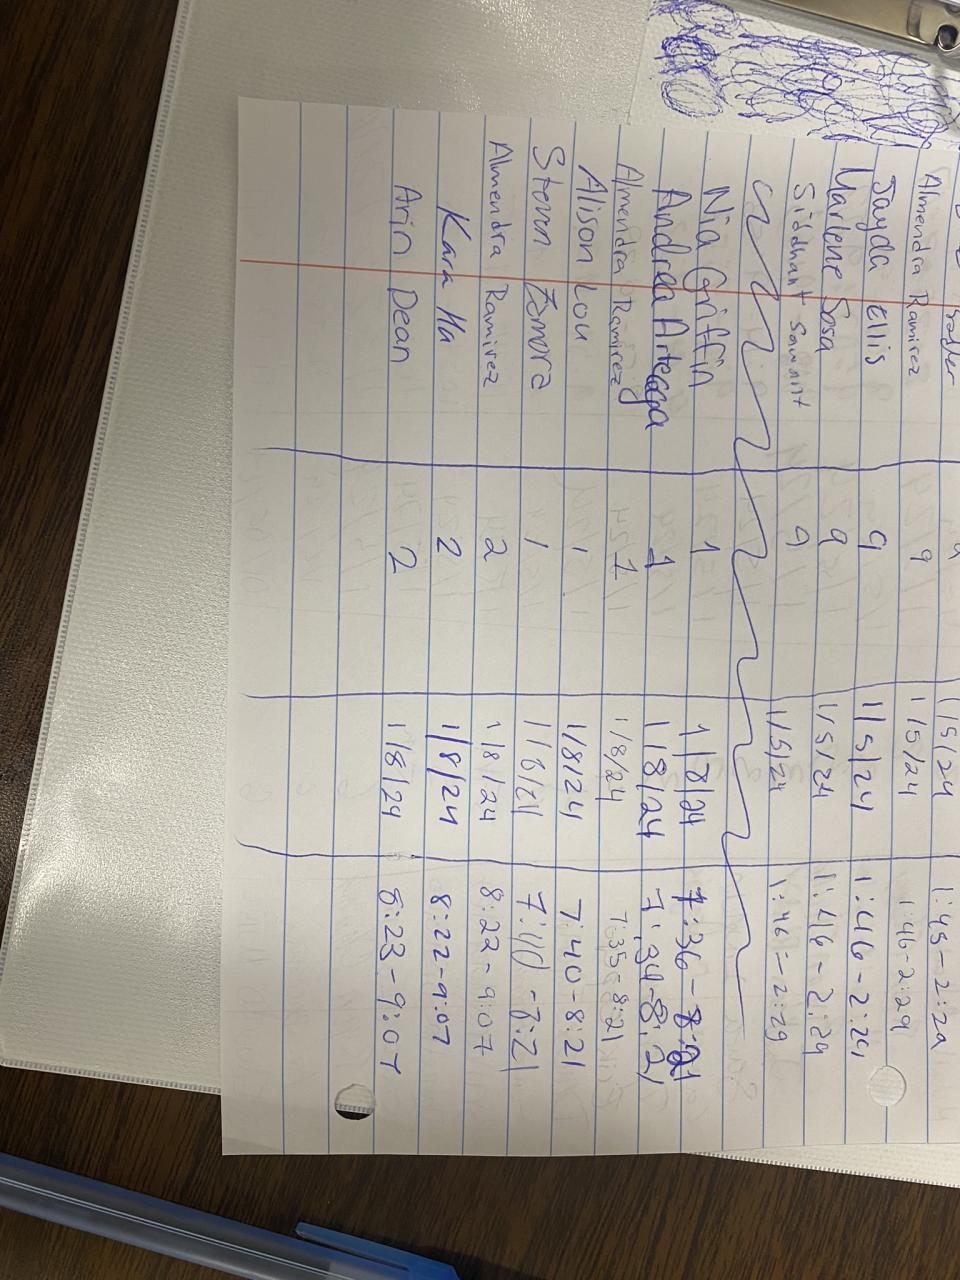 1/5/24 1:45 - 2:29
Almendra Ramirez 9 1/5/24 1:46 - 2:29
Jayda Ellis 9 1/5/24 1:46 - 2:29
Marlene Sosa 9 1/5/24 1:46 - 2:29
Siddhant Sawant 9 1/5/24 1:46 - 2:29
Nia Griffin 1 1/8/24 7:36 - 8:21
Andrea Arteaga 1 1/8/24 7:34 - 8:21
Almendra Ramirez 1 1/8/24 7:35 - 8:21
Alison Lou 1 1/8/24 7:40 - 8:21
Steven Zamora 1 7:40 - 8:21
Almendra Ramirez 2 1/8/24 8:22 - 9:07
Kara Ha 2 1/8/24 8:22 - 9:07
Arin Dean 2 1/8/24 8:23 - 9:07